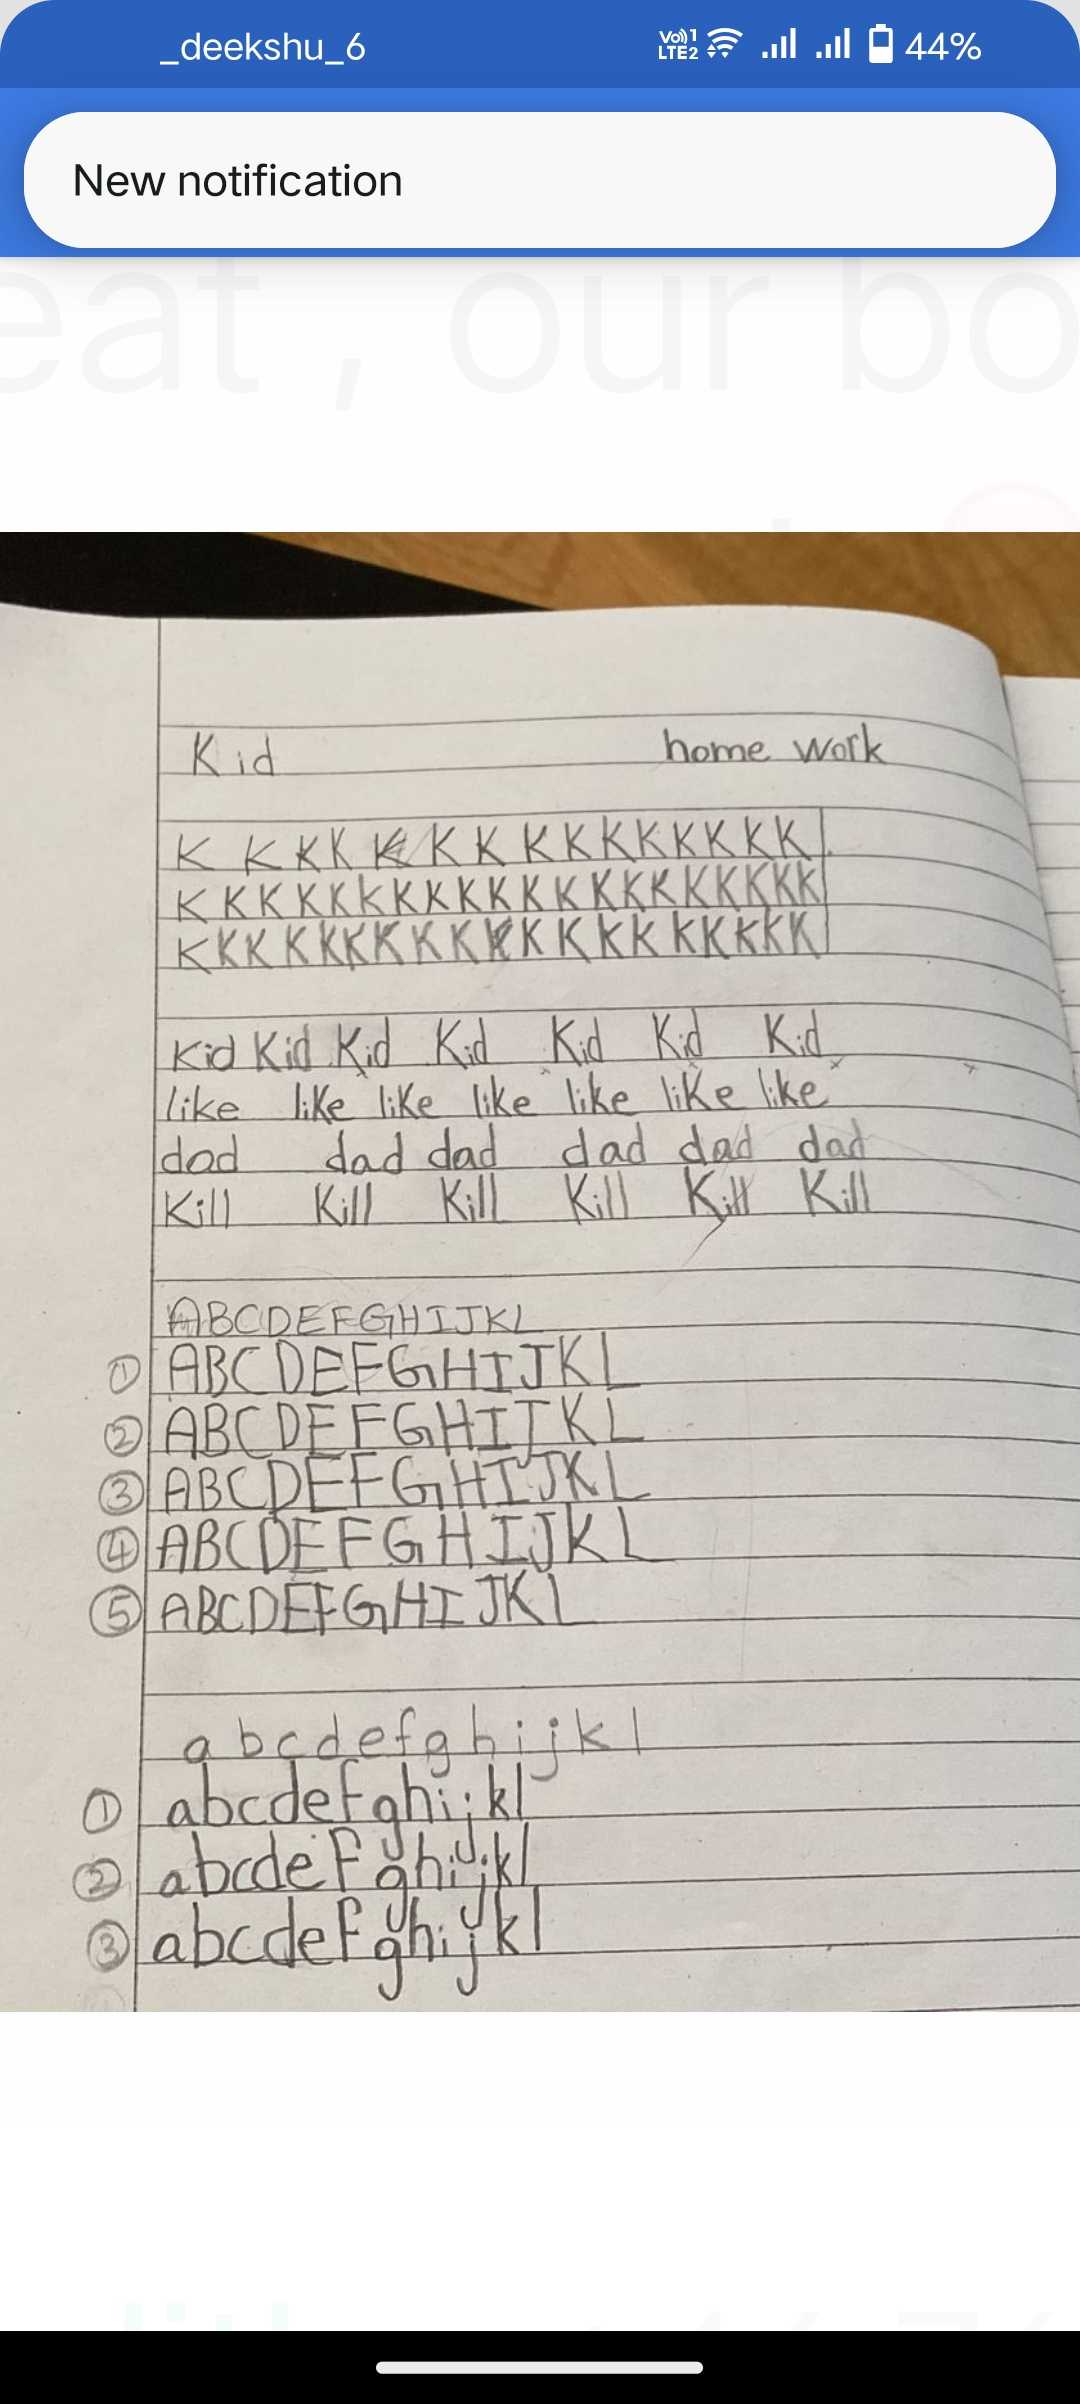 _deekshu_6 Vo)) 1 LTE2 44%
New notification
eat , our bo
Kid home work
K K K K K K K K K K K K K K K
K K K K K k K K K K K K K K K K K K K K
K K K K K K K K K K K K K K k K K K K K K
Kid Kid Kid Kid Kid Kid Kid
like liKe liKe like like liKe like
dad dad dad dad dad dad
Kill Kill Kill Kill Kill Kill
ABCDEFGHIJKL
① ABCDEFGHIJKL
② ABCDEFGHIJKL
③ ABCDEFGHIJKL
④ ABCDEFGHIJKL
⑤ ABCDEFGHIJKL
a b c d e f g h i j k l
① abcdefghijkl
② abcdefghijkl
③ abcdefghijkl